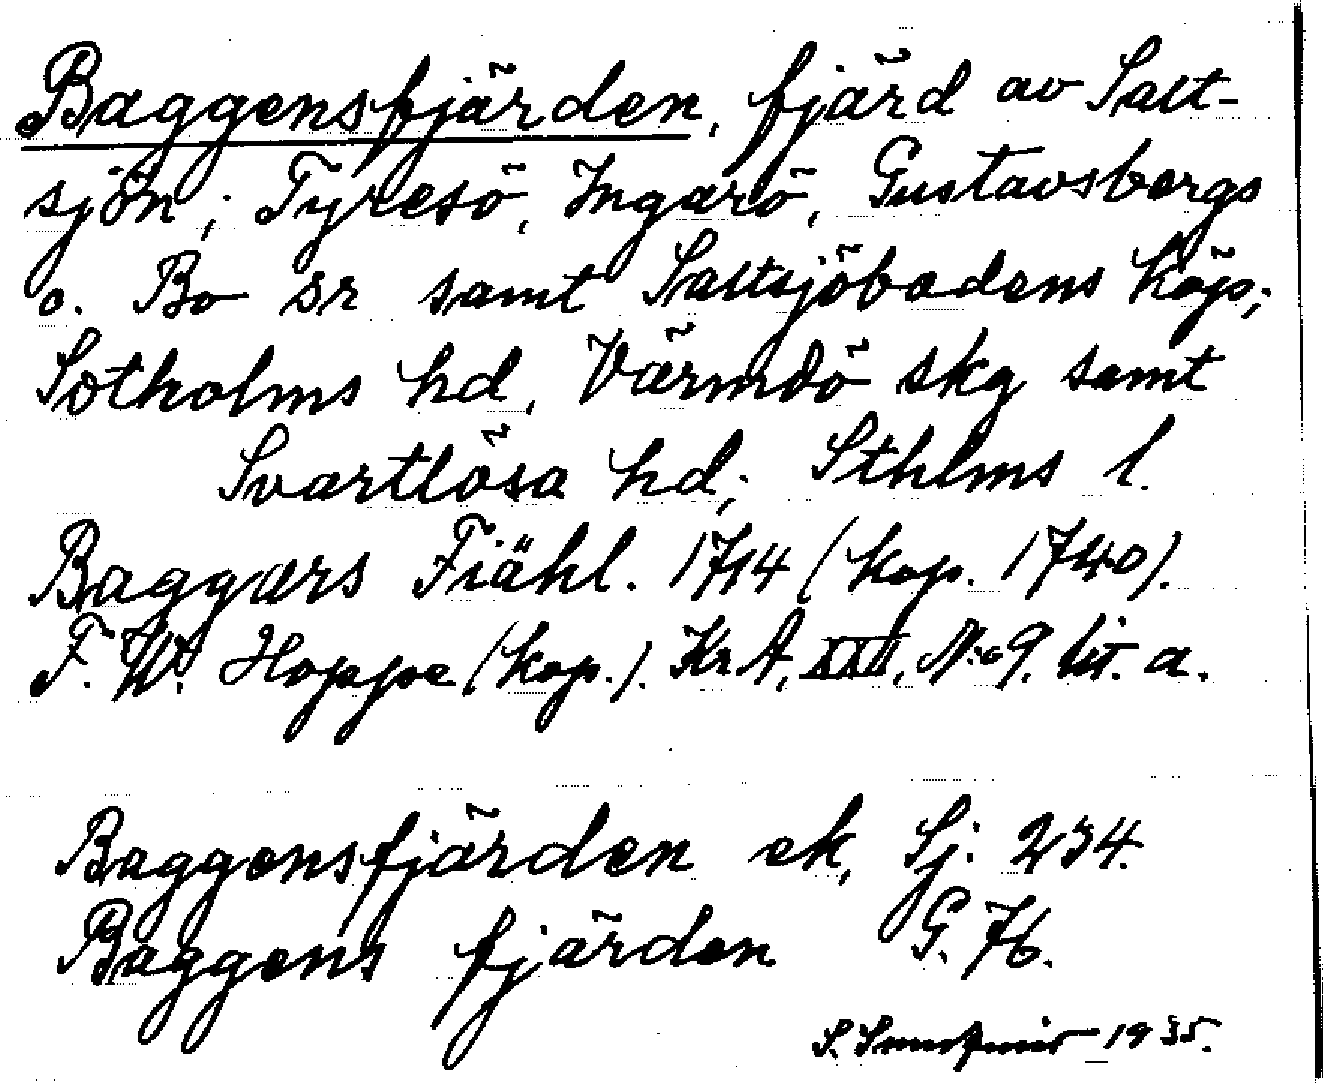 Baggensfjärden, fjärd av Salt-
sjön; Tyresö, Ingarö, Gustavsbergs
o. Bo sr samt Saltsjöbadens köp;
Sotholms hd, Värmdö skg samt
Svartlösa hd; Sthlms l.
Baggers Fiähl. 1714 (kop. 1740).
F. W. Hoppe (kop.). KrA, XXII, N:o 9. lit. a.
Baggensfjärden ek, Sj: 234.
Baggens fjärden G. 76.
S. 1935.